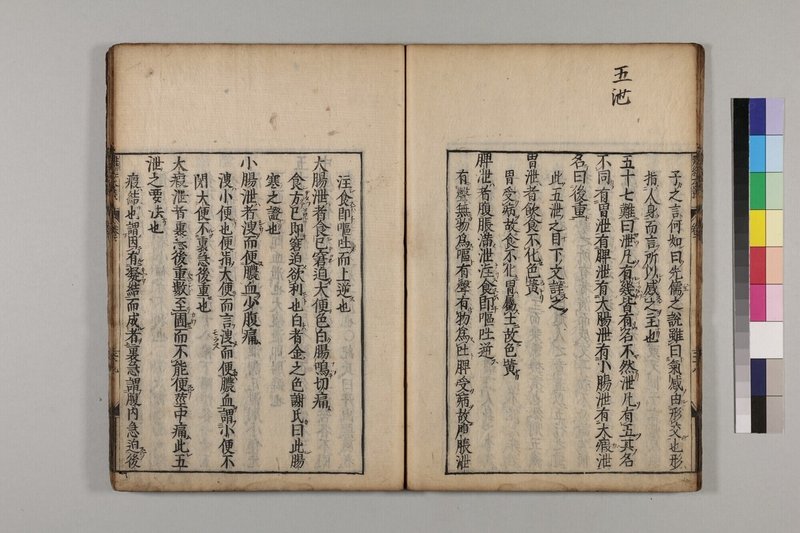 五泄
子之言何如曰先儒之說雖曰氣感由形交也形
指人身而言所以感之主也
五十七難曰泄凡有幾皆有名不然泄凡有五其名
不同有胃泄有脾泄有大腸泄有小腸泄有大瘕泄
名曰後重
此五泄之目下文詳之
胃泄者飲食不化色黃
胃受病故食不化胃屬土故色黃
脾泄者腹脹滿泄注食即嘔吐逆
有聲無物為嘔有聲有物為吐脾受病故腹脹泄
注食即嘔吐而上逆也
大腸泄者食已窘迫大便色白腸鳴切痛
食方已即窘迫欲利也白者金之色謝氏曰此腸
寒之證也
小腸泄者溲而便膿血少腹痛
溲小便也便指大便而言溲而便膿血謂小便不
閉大便不裏急後重也
大瘕泄者裏急後重數至圊而不能便莖中痛此五
泄之要法也
瘕結也謂因有凝結而成者裏急謂腹內急迫後